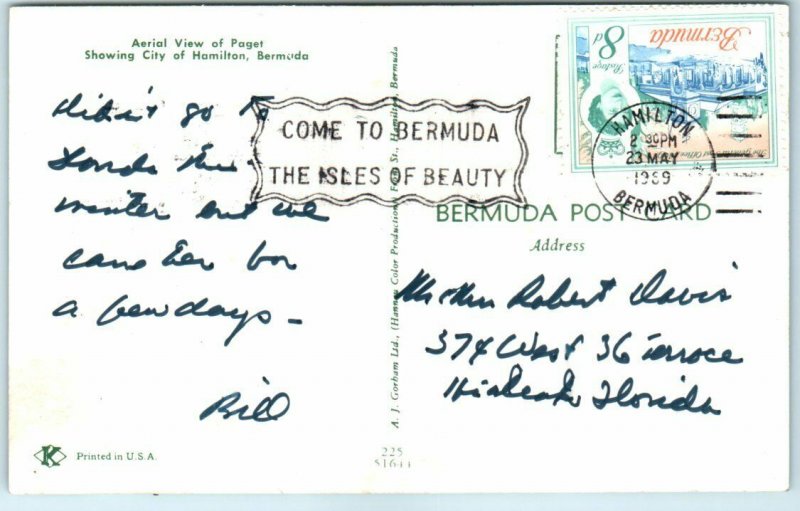 Aerial View of Paget
Showing City of Hamilton, Bermuda
Didn't go to
this
winter but we
came here for
a few days –
Bill
COME TO BERMUDA
THE ISLES OF BEAUTY
8d
Postage
Bermuda
HAMILTON
2 30PM
23 MAY
1969
BERMUDA
BERMUDA POST CARD
Address
Mr & Mrs Robert Davis
374 West 36 Terrace
Hialeah, Florida
A. J. Gorham Ltd., (Hannau Color Productions) Front St., Hamilton, Bermuda
K
Printed in U.S.A.
225
51644